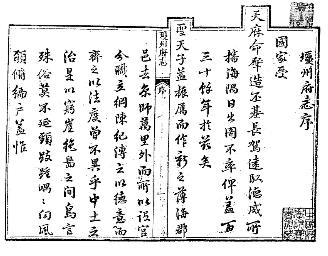 瓊州府志序
國家受
天府命肇造丕基長駕遠馭德威所
播海隅日出罔不率俾蓋百
三十餘年於茲矣
聖天子益振厲而作新之薄海郡
瓊州府志
序
邑去京師萬里外而所以設官
分職立綱陳紀傅之以德意而
齊之以法度曾不異乎中土之
治是以窮崖絶島之間鳥言
殊俗莫不延頸跂踵喁喁向風
願備編戶蓋惟